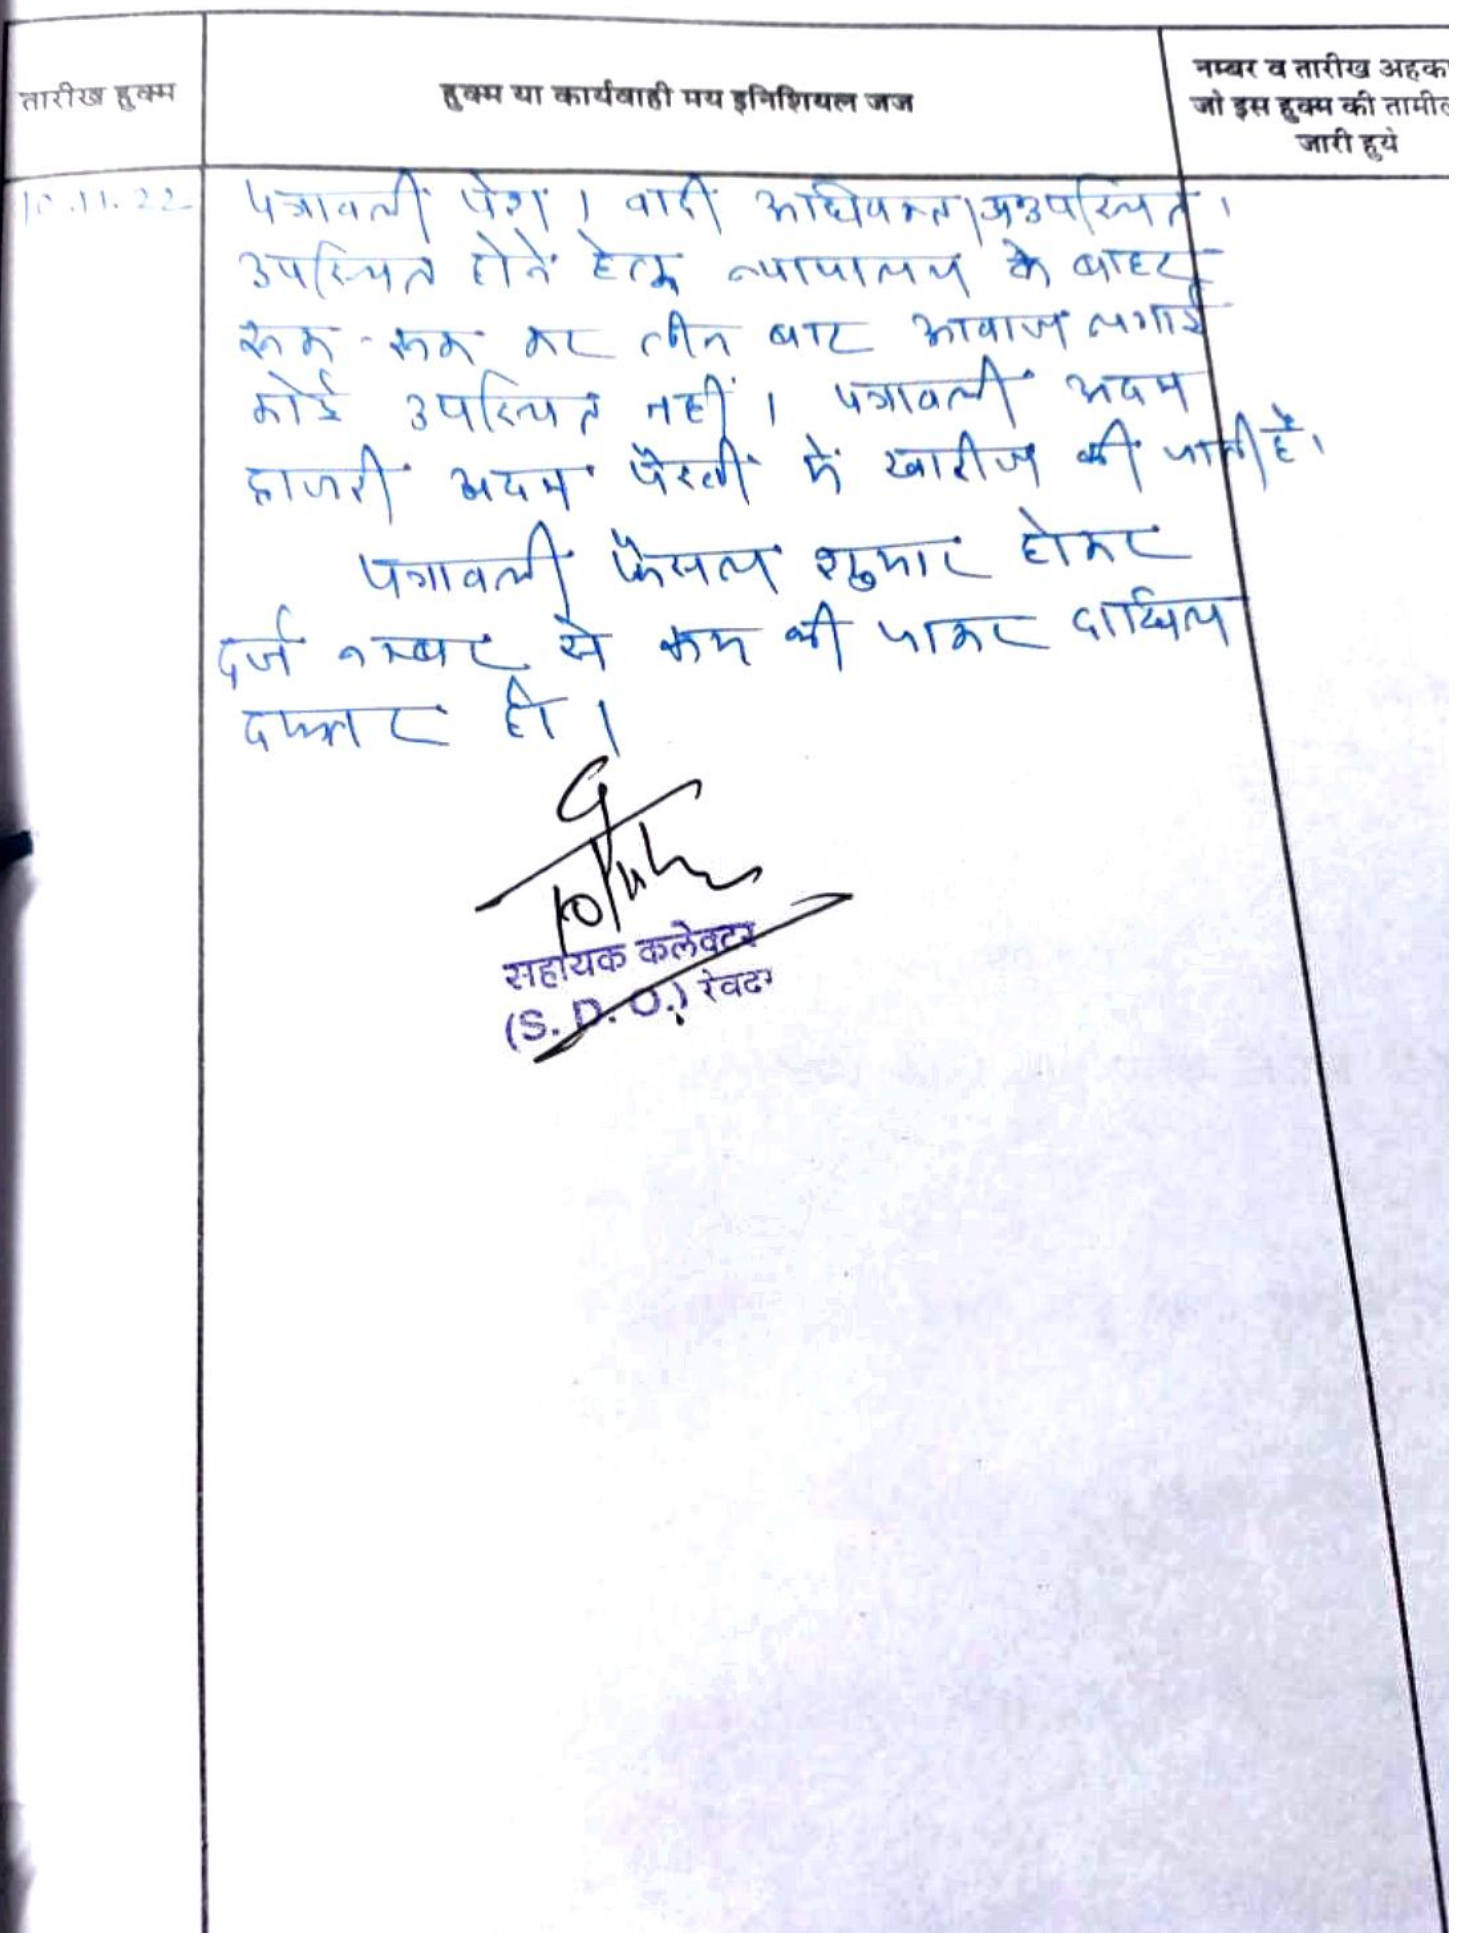 तारीख हुक्म
हुक्म या कार्यवाही मय इनिशियल जज
नम्बर व तारीख अहका
जो इस हुक्म की तामील
जारी हुये
10.11.22
पत्रावली पेश । वादी अधिवक्ता अनुपस्थित ।
उपस्थित होने हेतु न्यायालय के बाहर
रूक-रूक कर तीन बार आवाज लगाई
कोई उपस्थित नहीं । पत्रावली अदम
हाजरी अदम पैरवी में खारीज की जाती है।
पत्रावली फैसल शुमार होकर
दर्ज नम्बर से कम की जाकर दाखिल
दफ्तर हो ।
सहायक कलेक्टर
(S. D. O.) रेवदर